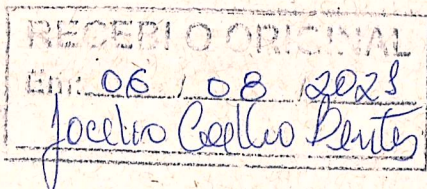 RECEBI O ORIGINAL
Em: 06 / 08 / 2021
Jocelino Coelho Bentes